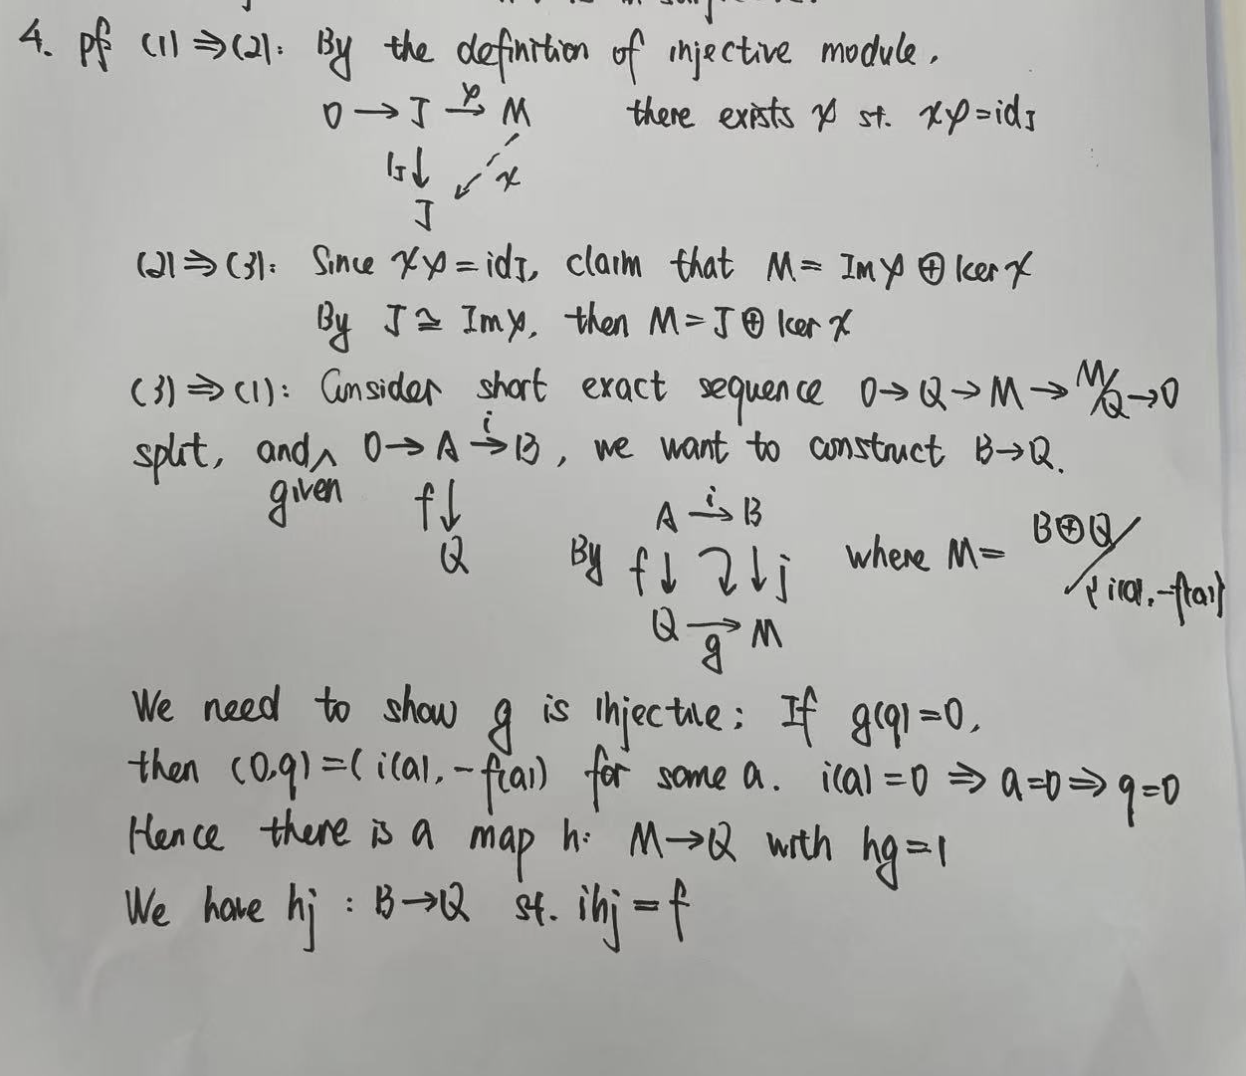 4. pf (1)⇒(2): By the definition of injective module.
0 → J →φ M there exists χ st. χφ=id_J
1_J ↓ χ
J
(2)⇒(3): Since χφ=id_J, claim that M= Imφ ⊕ ker χ
By J ≅ Imφ, then M=J⊕ ker χ
(3)⇒(1): Consider short exact sequence 0→Q→M→M/Q→0
split, and given 0→A →i B, we want to construct B→Q.
f↓
Q
A →i B
By f↓ ↓j where M= B⊕Q/{i(a),-f(a)}
Q →g M
We need to show g is injective: If g(q)=0,
then (0,q)=(i(a),-f(a)) for some a. i(a)=0 ⇒ a=0 ⇒ q=0
Hence there is a map h: M→Q with hg=1
We have hj : B→Q st. ihj=f